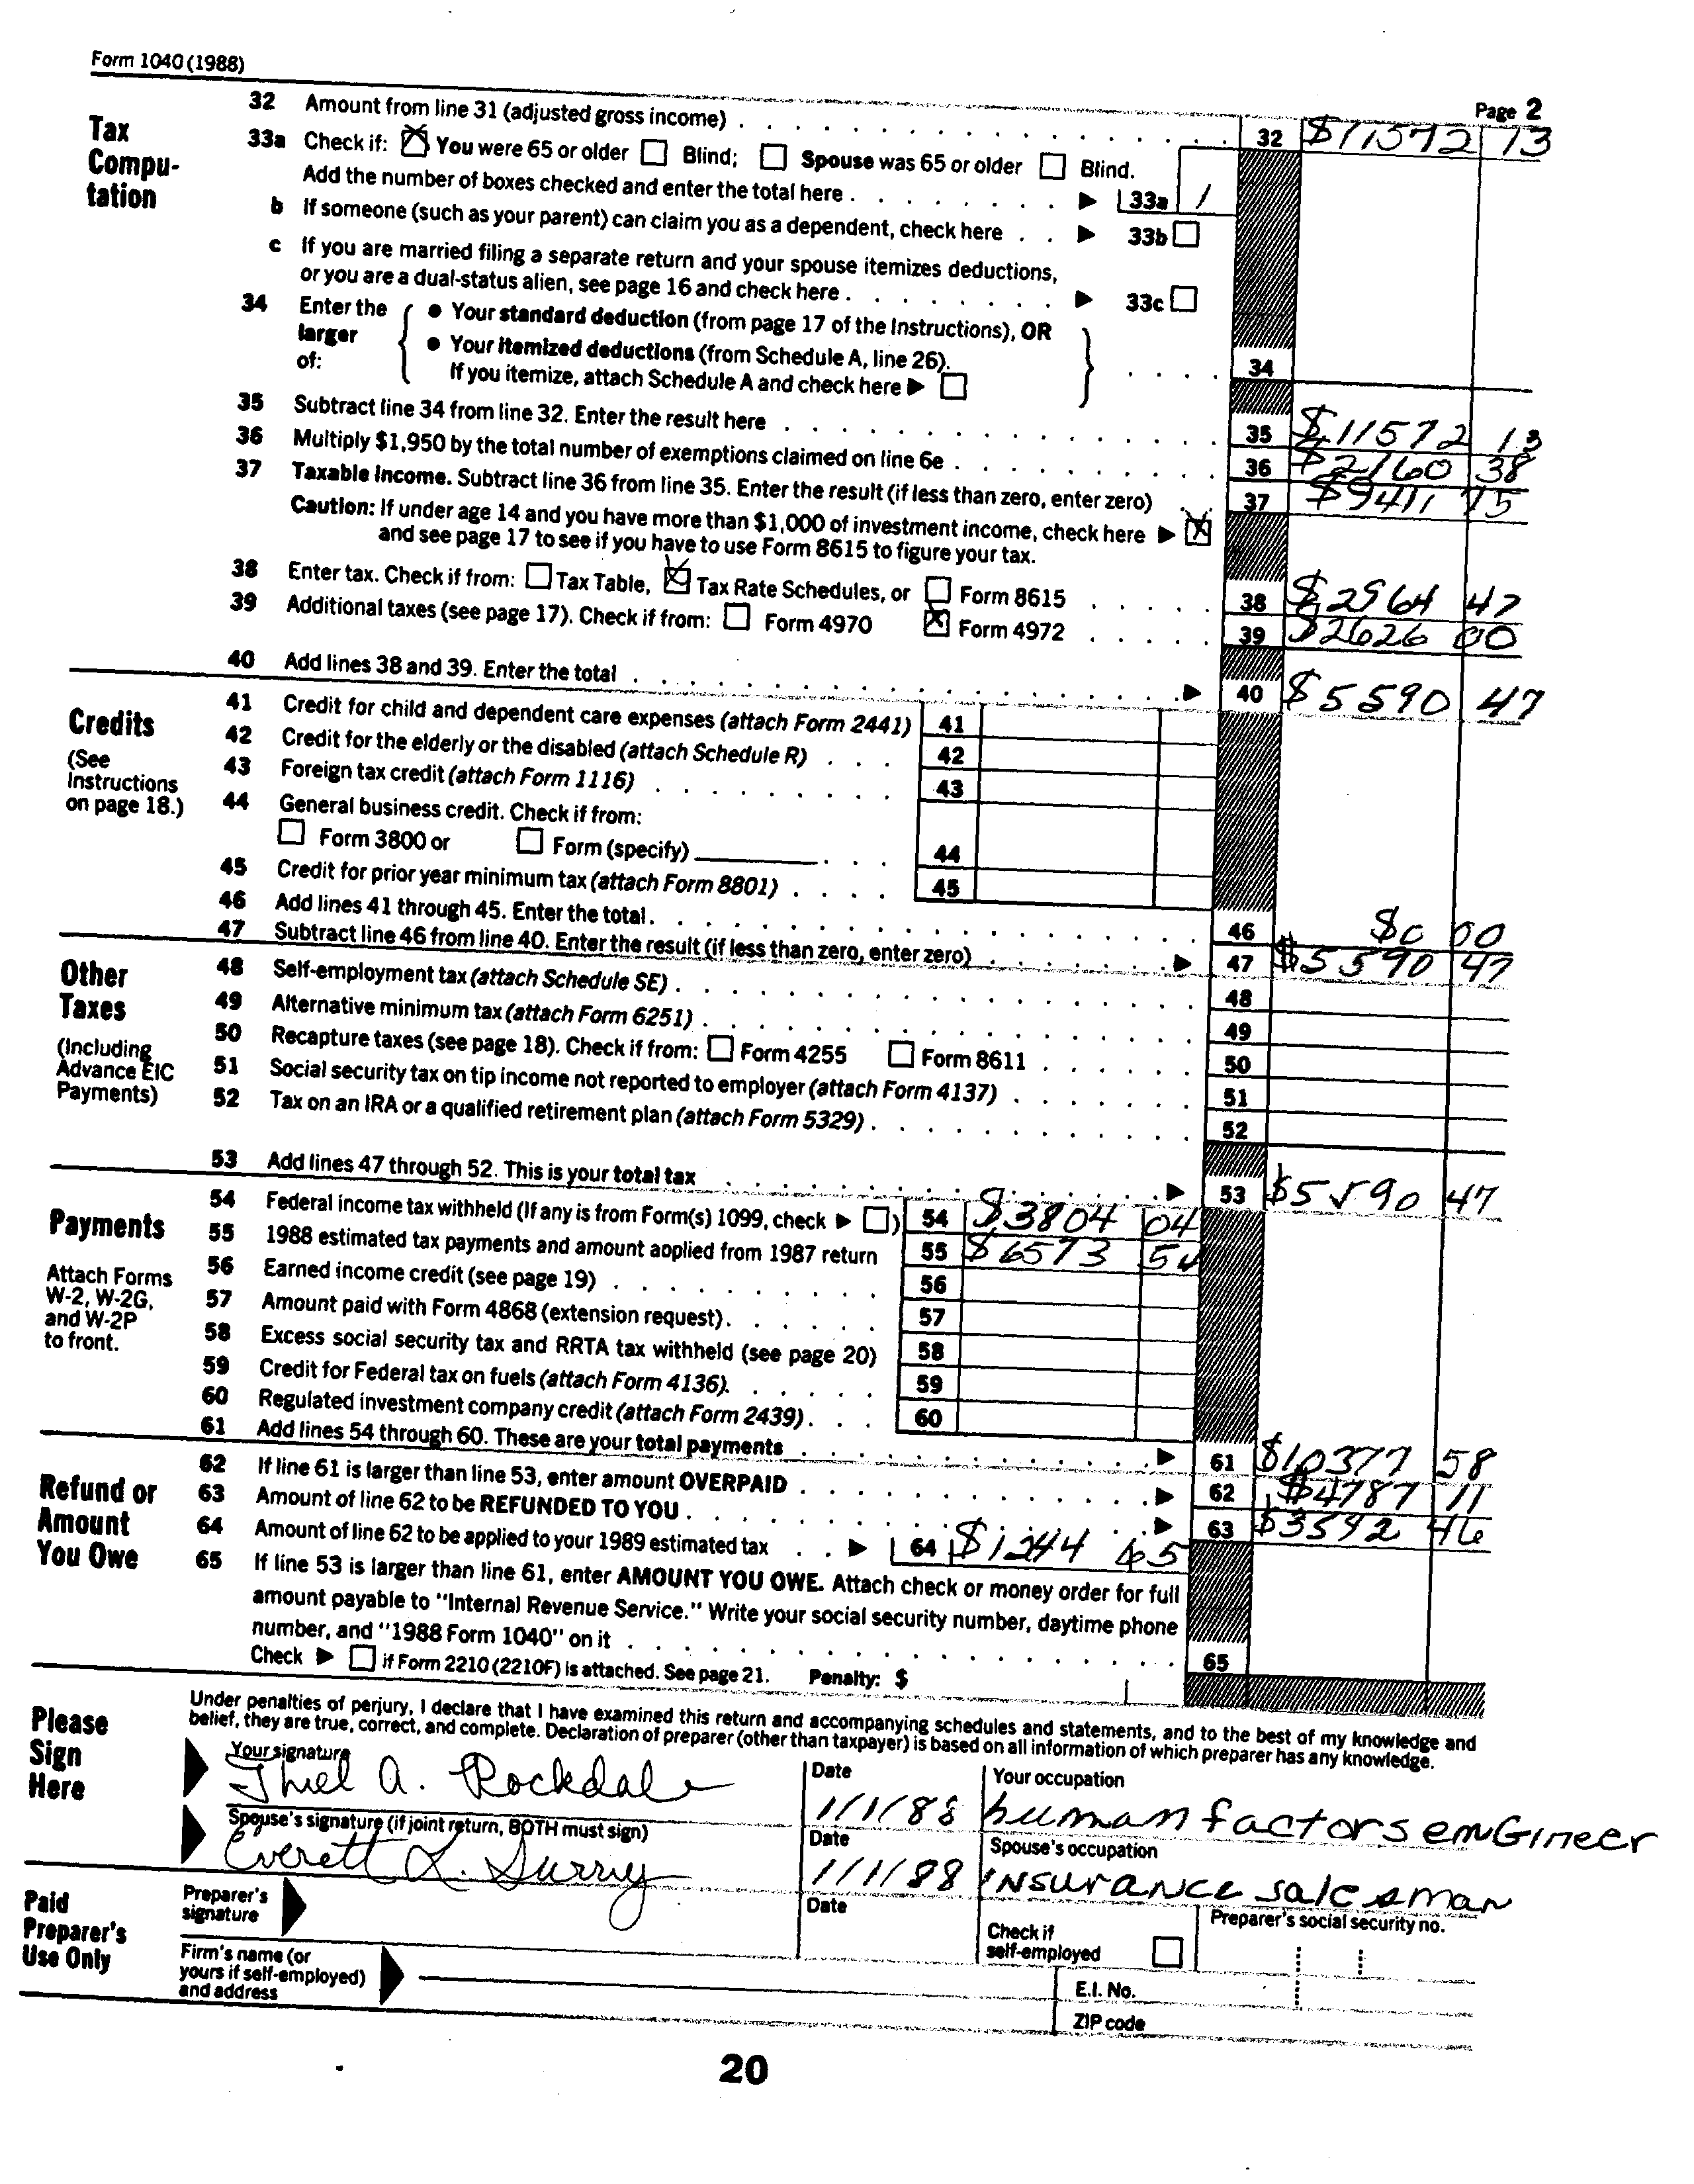 Form 1040 (1988)
Page 2
Tax Compu- tation
32 Amount from line 31 (adjusted gross income) 32 $11572 13
33a Check if: You were 65 or older Blind; Spouse was 65 or older Blind.
Add the number of boxes checked and enter the total here 33a 1
b If someone (such as your parent) can claim you as a dependent, check here 33b
c If you are married filing a separate return and your spouse itemizes deductions,
or you are a dual-status alien, see page 16 and check here 33c
34 Enter the larger of:
● Your standard deduction (from page 17 of the Instructions), OR
● Your itemized deductions (from Schedule A, line 26).
If you itemize, attach Schedule A and check here 34
35 Subtract line 34 from line 32. Enter the result here 35 $11572 13
36 Multiply $1,950 by the total number of exemptions claimed on line 6e 36 $2160 38
37 Taxable income. Subtract line 36 from line 35. Enter the result (if less than zero, enter zero) 37 $9411 75
Caution: If under age 14 and you have more than $1,000 of investment income, check here
and see page 17 to see if you have to use Form 8615 to figure your tax.
38 Enter tax. Check if from: Tax Table, Tax Rate Schedules, or Form 8615 38 $2964 47
39 Additional taxes (see page 17). Check if from: Form 4970 Form 4972 39 $2626 00
40 Add lines 38 and 39. Enter the total 40 $5590 47
Credits
(See Instructions on page 18.)
41 Credit for child and dependent care expenses (attach Form 2441) 41
42 Credit for the elderly or the disabled (attach Schedule R) 42
43 Foreign tax credit (attach Form 1116) 43
44 General business credit. Check if from:
Form 3800 or Form (specify) 44
45 Credit for prior year minimum tax (attach Form 8801) 45
46 Add lines 41 through 45. Enter the total 46 $0 00
47 Subtract line 46 from line 40. Enter the result (if less than zero, enter zero) 47 $5590 47
Other Taxes
(Including Advance EIC Payments)
48 Self-employment tax (attach Schedule SE) 48
49 Alternative minimum tax (attach Form 6251) 49
50 Recapture taxes (see page 18). Check if from: Form 4255 Form 8611 50
51 Social security tax on tip income not reported to employer (attach Form 4137) 51
52 Tax on an IRA or a qualified retirement plan (attach Form 5329) 52
53 Add lines 47 through 52. This is your total tax 53 $5590 47
Payments
Attach Forms W-2, W-2G, and W-2P to front.
54 Federal income tax withheld (If any is from Form(s) 1099, check ) 54 $3804 04
55 1988 estimated tax payments and amount applied from 1987 return 55 $6573 54
56 Earned income credit (see page 19) 56
57 Amount paid with Form 4868 (extension request) 57
58 Excess social security tax and RRTA tax withheld (see page 20) 58
59 Credit for Federal tax on fuels (attach Form 4136) 59
60 Regulated investment company credit (attach Form 2439) 60
61 Add lines 54 through 60. These are your total payments 61 $10377 58
Refund or Amount You Owe
62 If line 61 is larger than line 53, enter amount OVERPAID 62 $4787 11
63 Amount of line 62 to be REFUNDED TO YOU 63 $3542 46
64 Amount of line 62 to be applied to your 1989 estimated tax 64 $1244 65
65 If line 53 is larger than line 61, enter AMOUNT YOU OWE. Attach check or money order for full
amount payable to "Internal Revenue Service." Write your social security number, daytime phone
number, and "1988 Form 1040" on it
Check if Form 2210 (2210F) is attached. See page 21. Penalty: $ 65
Please Sign Here
Under penalties of perjury, I declare that I have examined this return and accompanying schedules and statements, and to the best of my knowledge and
belief, they are true, correct, and complete. Declaration of preparer (other than taxpayer) is based on all information of which preparer has any knowledge.
Your signature Date Your occupation
Thiel A. Rockdale 1/1/88 human factors enGineer
Spouse's signature (if joint return, BOTH must sign) Date Spouse's occupation
Everett L. Surry 1/1/88 insurance salesman
Paid Preparer's Use Only
Preparer's signature Date Check if self-employed Preparer's social security no.
Firm's name (or yours if self-employed) and address
E.I. No.
ZIP code
20